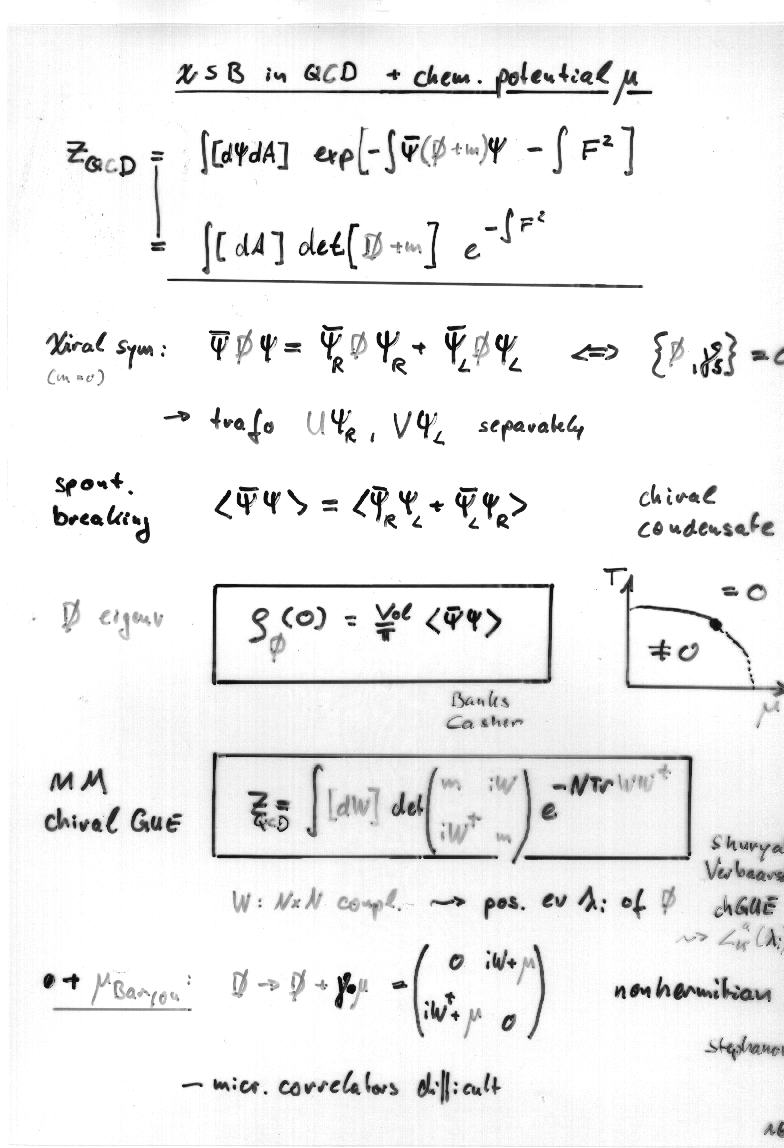 χSB in QCD + chem. potential μ
Z_QCD = ∫[dΨdA] exp[-∫Ψ̄(D̸+m)Ψ - ∫F²]
= ∫[dA] det[D̸+m] e^{-∫F²}
χiral sym: Ψ̄D̸Ψ = Ψ̄_R D̸ Ψ_R + Ψ̄_L D̸ Ψ_L <=> {D̸, γ₅} = 0
(m=0)
→ trafo UΨ_R, VΨ_L separately
spont. breaking <Ψ̄Ψ> = <Ψ̄_R Ψ_L + Ψ̄_L Ψ_R> chiral condensate
D̸ eigenv ρ_D̸(0) = Vol/π <Ψ̄Ψ>
T = 0
≠ 0
μ
Banks
Casher
MM
chiral GUE Z_QCD = ∫[dW] det(m iW iW⁺ m) e^{-NTrWW⁺}
Shurya
Verbaars
W: N×N compl. ⇝ pos. ev λᵢ of D̸ chGUE
⇝ L
(λᵢ
• + μ_Baryon: D̸ → D̸ + γ₀μ = (0 iW+μ iW⁺+μ 0) nonhermitian
Stephanov
- micr. correlators difficult